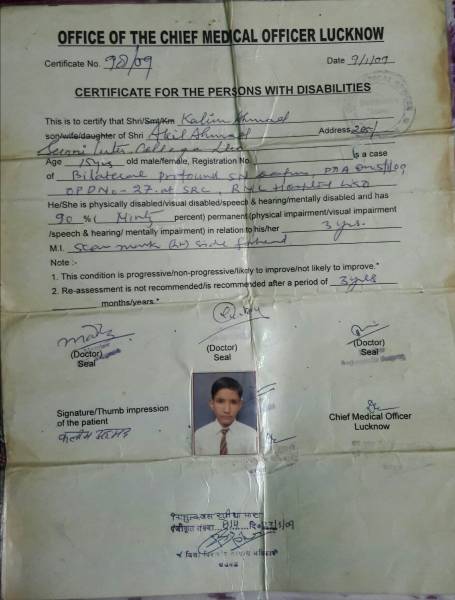 OFFICE OF THE CHIEF MEDICAL OFFICER LUCKNOW
Certificate No. 98/09 Date 9/1/09
CERTIFICATE FOR THE PERSONS WITH DISABILITIES
This is to certify that Shri/Smt/Km Kalim Ahmad
son/wife/daughter of Shri Akil Ahmad Address
Inter College
Age 15 yrs old male/female, Registration No. is a case
of Bilateral Profound SN
OPD No - 27 at SRC, RML Hospital LKO
He/She is physically disabled/visual disabled/speech & hearing/mentally disabled and has
90 % ( Ninty percent) permanent (physical impairment/visual impairment
/speech & hearing/ mentally impairment) in relation to his/her 3 yrs.
M.I. Scar mark (Rt) side
Note :-
1. This condition is progressive/non-progressive/likely to improve/not likely to improve.*
2. Re-assessment is not recommended/is recommended after a period of 3 yrs
months/years.*
(Doctor)
Seal
(Doctor)
Seal
(Doctor)
Seal
Signature/Thumb impression
of the patient
Chief Medical Officer
Lucknow